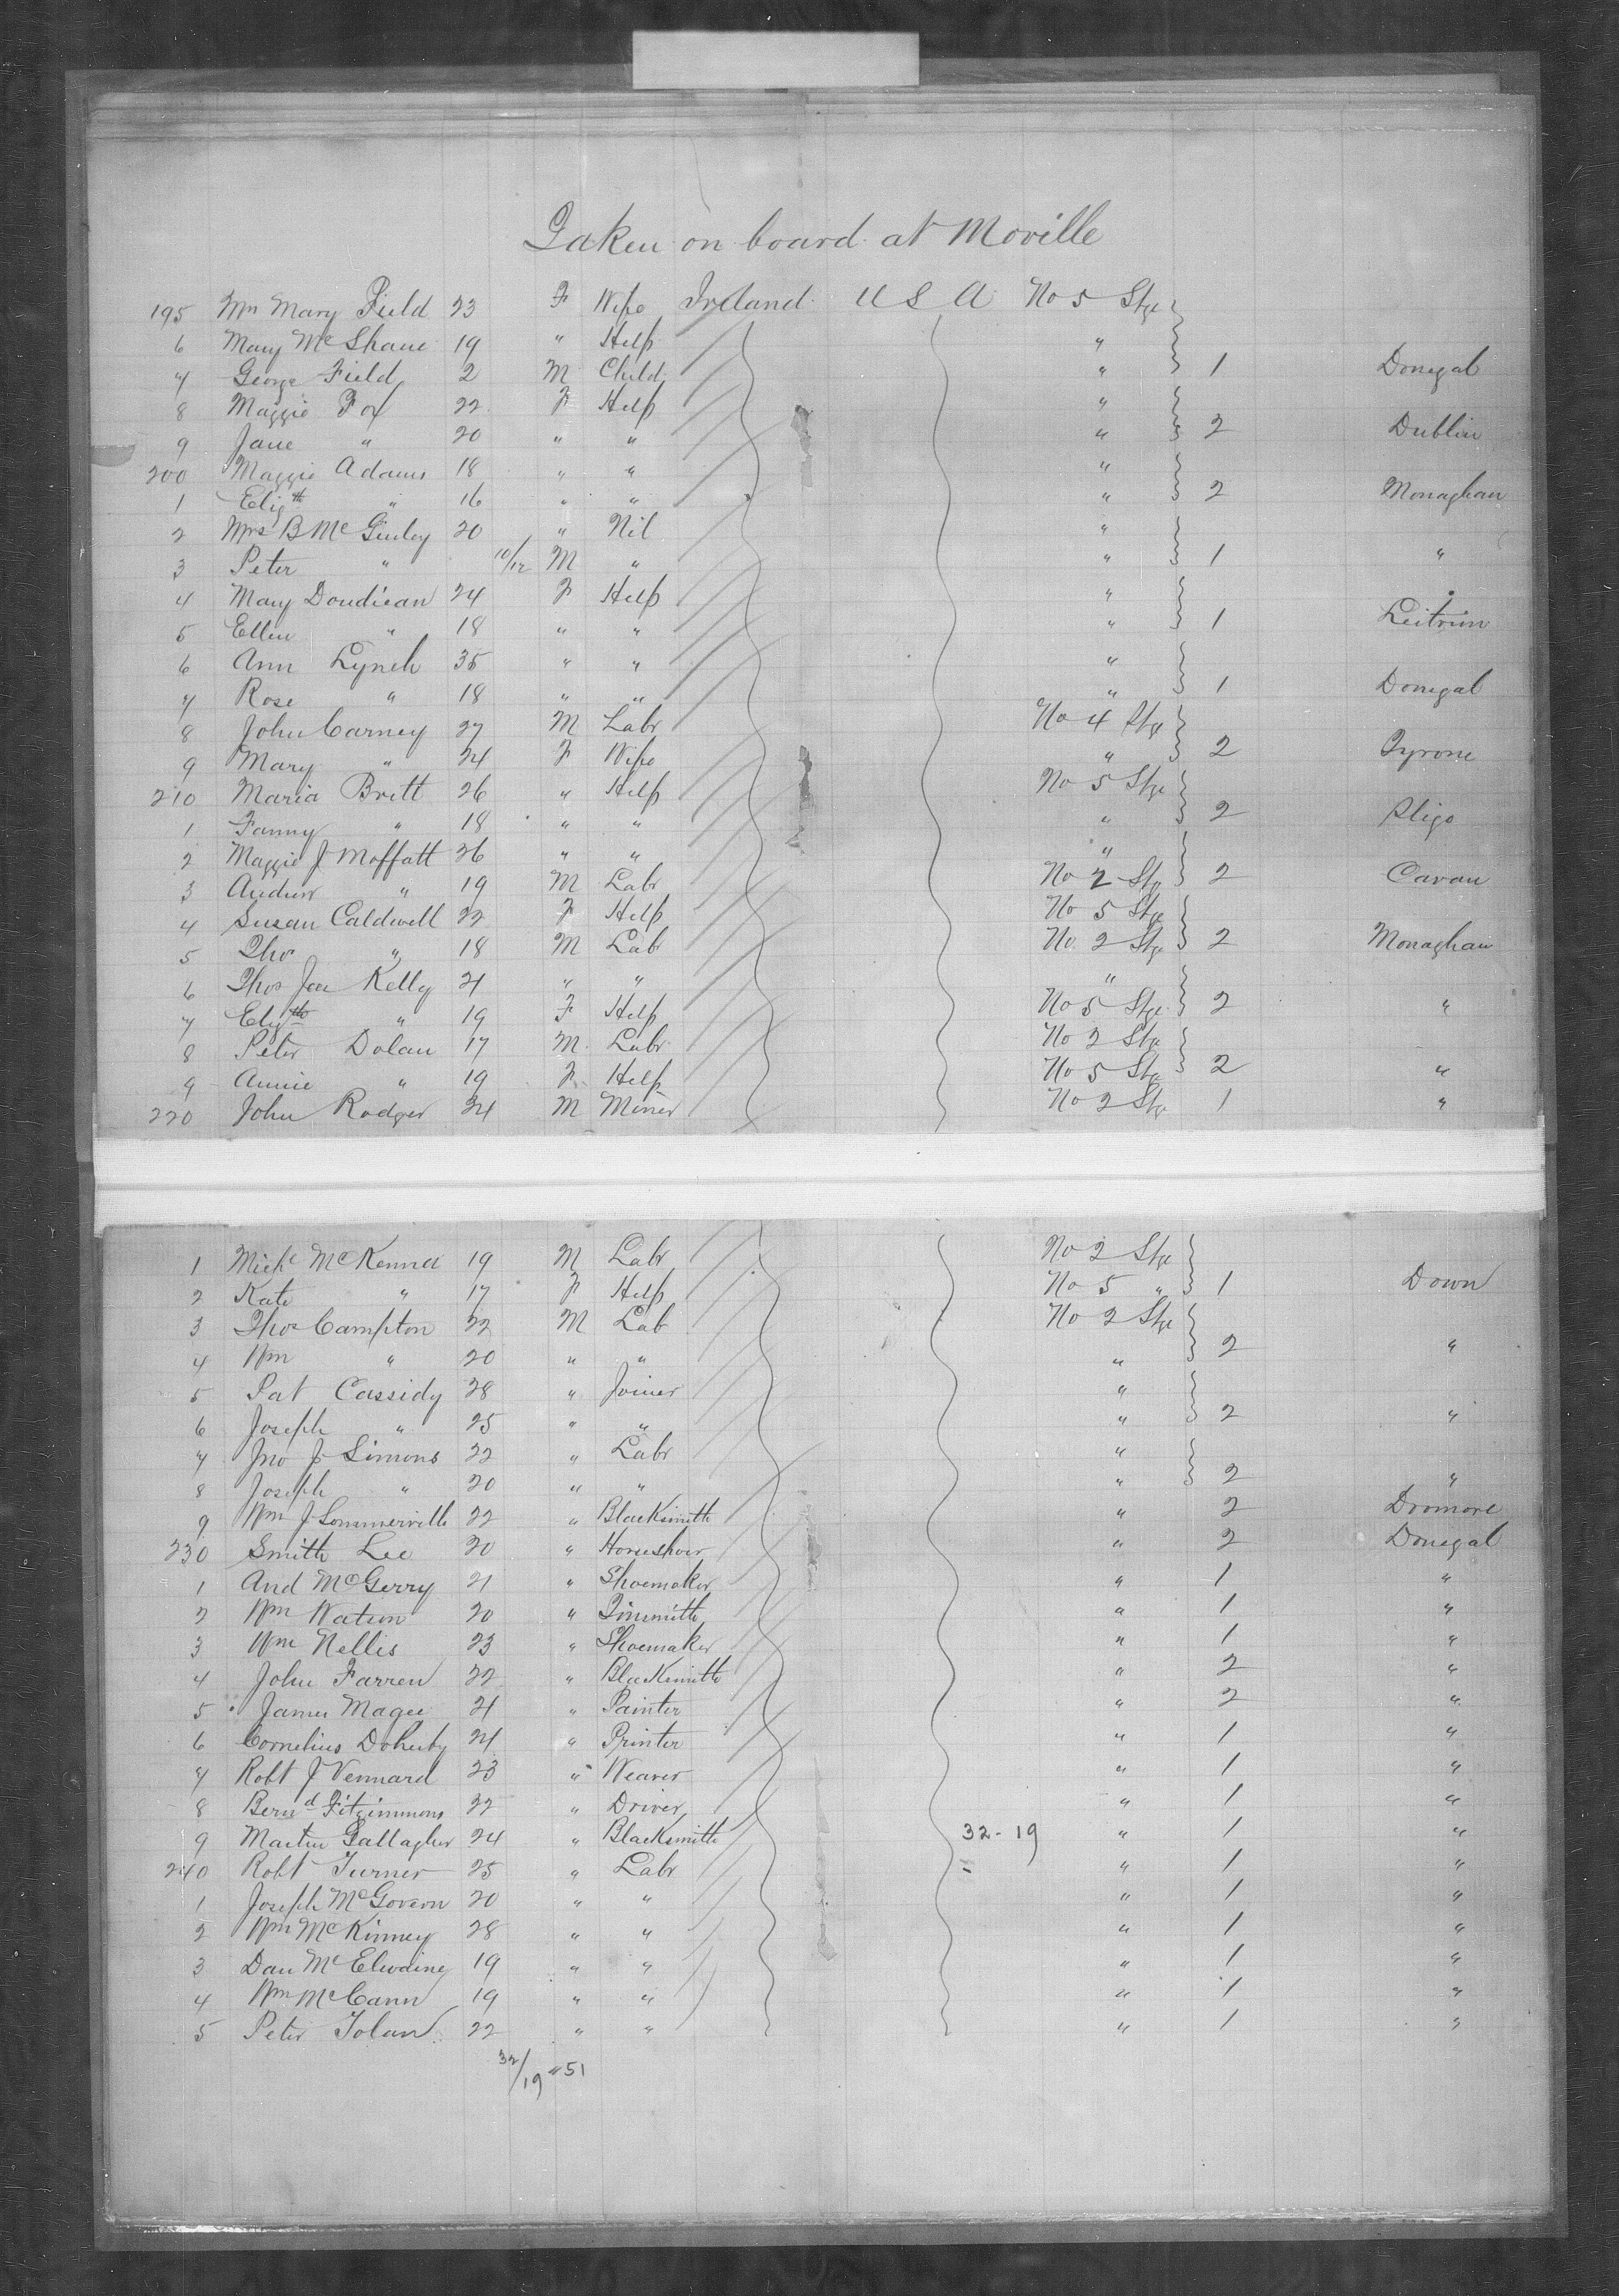 Taken on board at Moville
195 Mrs Mary Field 23 F Wife Ireland U S A No 5 Stge
6 Mary McShane 19 " Help "
7 George Field 2 M Child " 1 Donegal
8 Maggie Fox 22 F Help "
9 Jane " 20 " " " 2 Dublin
200 Maggie Adams 18 " " "
1 Elizth " 16 " " " 2 Monaghan
2 Mrs B McGinley 20 " Nil "
3 Peter " 10/12 M " " 1 "
4 Mary Doudiean 24 F Help "
5 Ellen " 18 " " " 1 Leitrim
6 Ann Lynch 35 " " "
7 Rose " 18 " " " 1 Donegal
8 John Carney 27 M Labr No 4 Stge
9 Mary " 24 F Wife " 2 Tyrone
210 Maria Britt 26 " Help No 5 Stge
1 Fanny " 18 " " " 2 Sligo
2 Maggie J Moffatt 26 " " "
3 Andrew " 19 M Labr No 2 Stge 2 Cavan
4 Susan Caldwell 22 F Help No 5 Stge
5 Thos " 18 M Lab No. 2 Stge 2 Monaghan
6 Thos Jas Kelly 21 " " "
7 Elizth " 19 F Help No 5 Stge 2 "
8 Peter Dolan 17 M Labr No 2 Stge
9 Annie " 19 F Help No 5 Stge 2 "
220 John Rodger 24 M Miner No 2 Stge 1 "
1 Michl McKenna 19 M Labr No 2 Stge
2 Kate " 17 F Help No 5 " 1 Down
3 Thos Campton 22 M Lab No 2 Stge
4 Wm " 20 " " " 2 "
5 Pat Cassidy 28 " Joiner "
6 Joseph " 25 " " " 2 "
7 Jno J Simons 22 " Labr "
8 Joseph " 20 " " " 2 "
9 Wm J Sommerville 22 " Blacksmith " 2 Dromore
230 Smith Lee 20 " Horseshoer " 2 Donegal
1 And McGerry 21 " Shoemaker " 1 "
2 Wm Watson 20 " Tinsmith " 1 "
3 Wm Nellis 23 " Shoemaker " 1 "
4 John Farren 22 " Blacksmith " 2 "
5 James Magee 21 " Painter " 2 "
6 Cornelius Doherty 24 " Printer " 1 "
7 Robt J Vennard 23 " Weaver " 1 "
8 Bernd Fitzimmons 22 " Driver " 1 "
9 Martin Gallagher 24 " Blacksmith 32-19 " 1 "
240 Robt Turner 25 " Labr " 1 "
1 Joseph McGovern 20 " " " 1 "
2 Wm McKinney 28 " " " 1 "
3 Dan McElwaine 19 " " " 1 "
4 Wm McCann 19 " " " 1 "
5 Peter Tolan 22 " " " 1 "
32/19 = 51